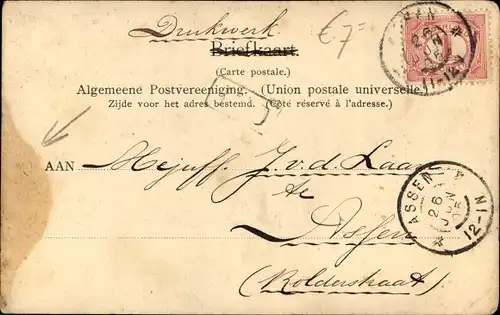 Drukwerk €7=
Briefkaart.
(Carte postale.)
Algemeene Postvereeniging. - (Union postale universelle.)
Zijde voor het adres bestemd. - (Côté réservé à l'adresse.)
AAN Mejuff. J.v.d. Laan
te
Assen
(Rolderstraat)
ASSEN
26 JUN
12-1N